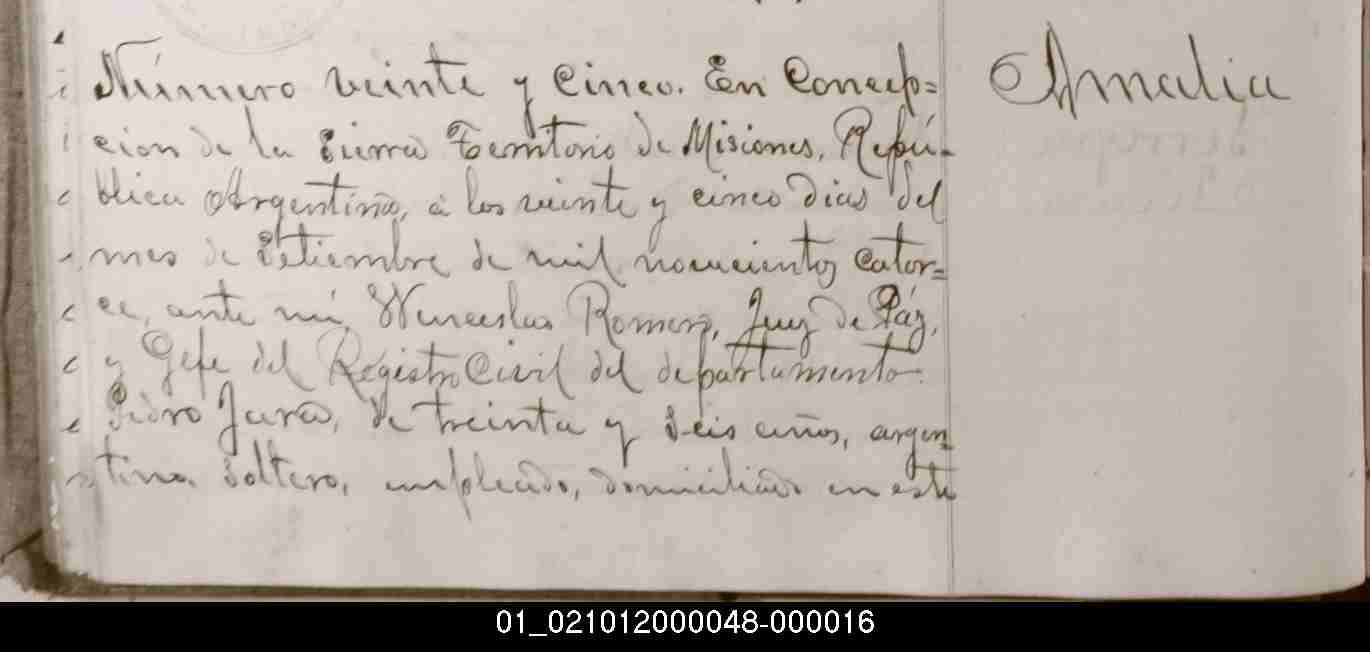 Número veinte y Cinco. En Concep=
cion de la Sierra Territorio de Misiones, Repú-
blica Argentina, á los veinte y cinco dias del
mes de Setiembre de mil novecientos cator=
ce, ante mí, Wenceslao Romero, Juez de Páz,
y Gefe del Registro Civil del departamento.
Pedro Jara, de treinta y seis años, argen
tino, soltero, empleado, domiciliado en este
Amalia
01_021012000048-000016